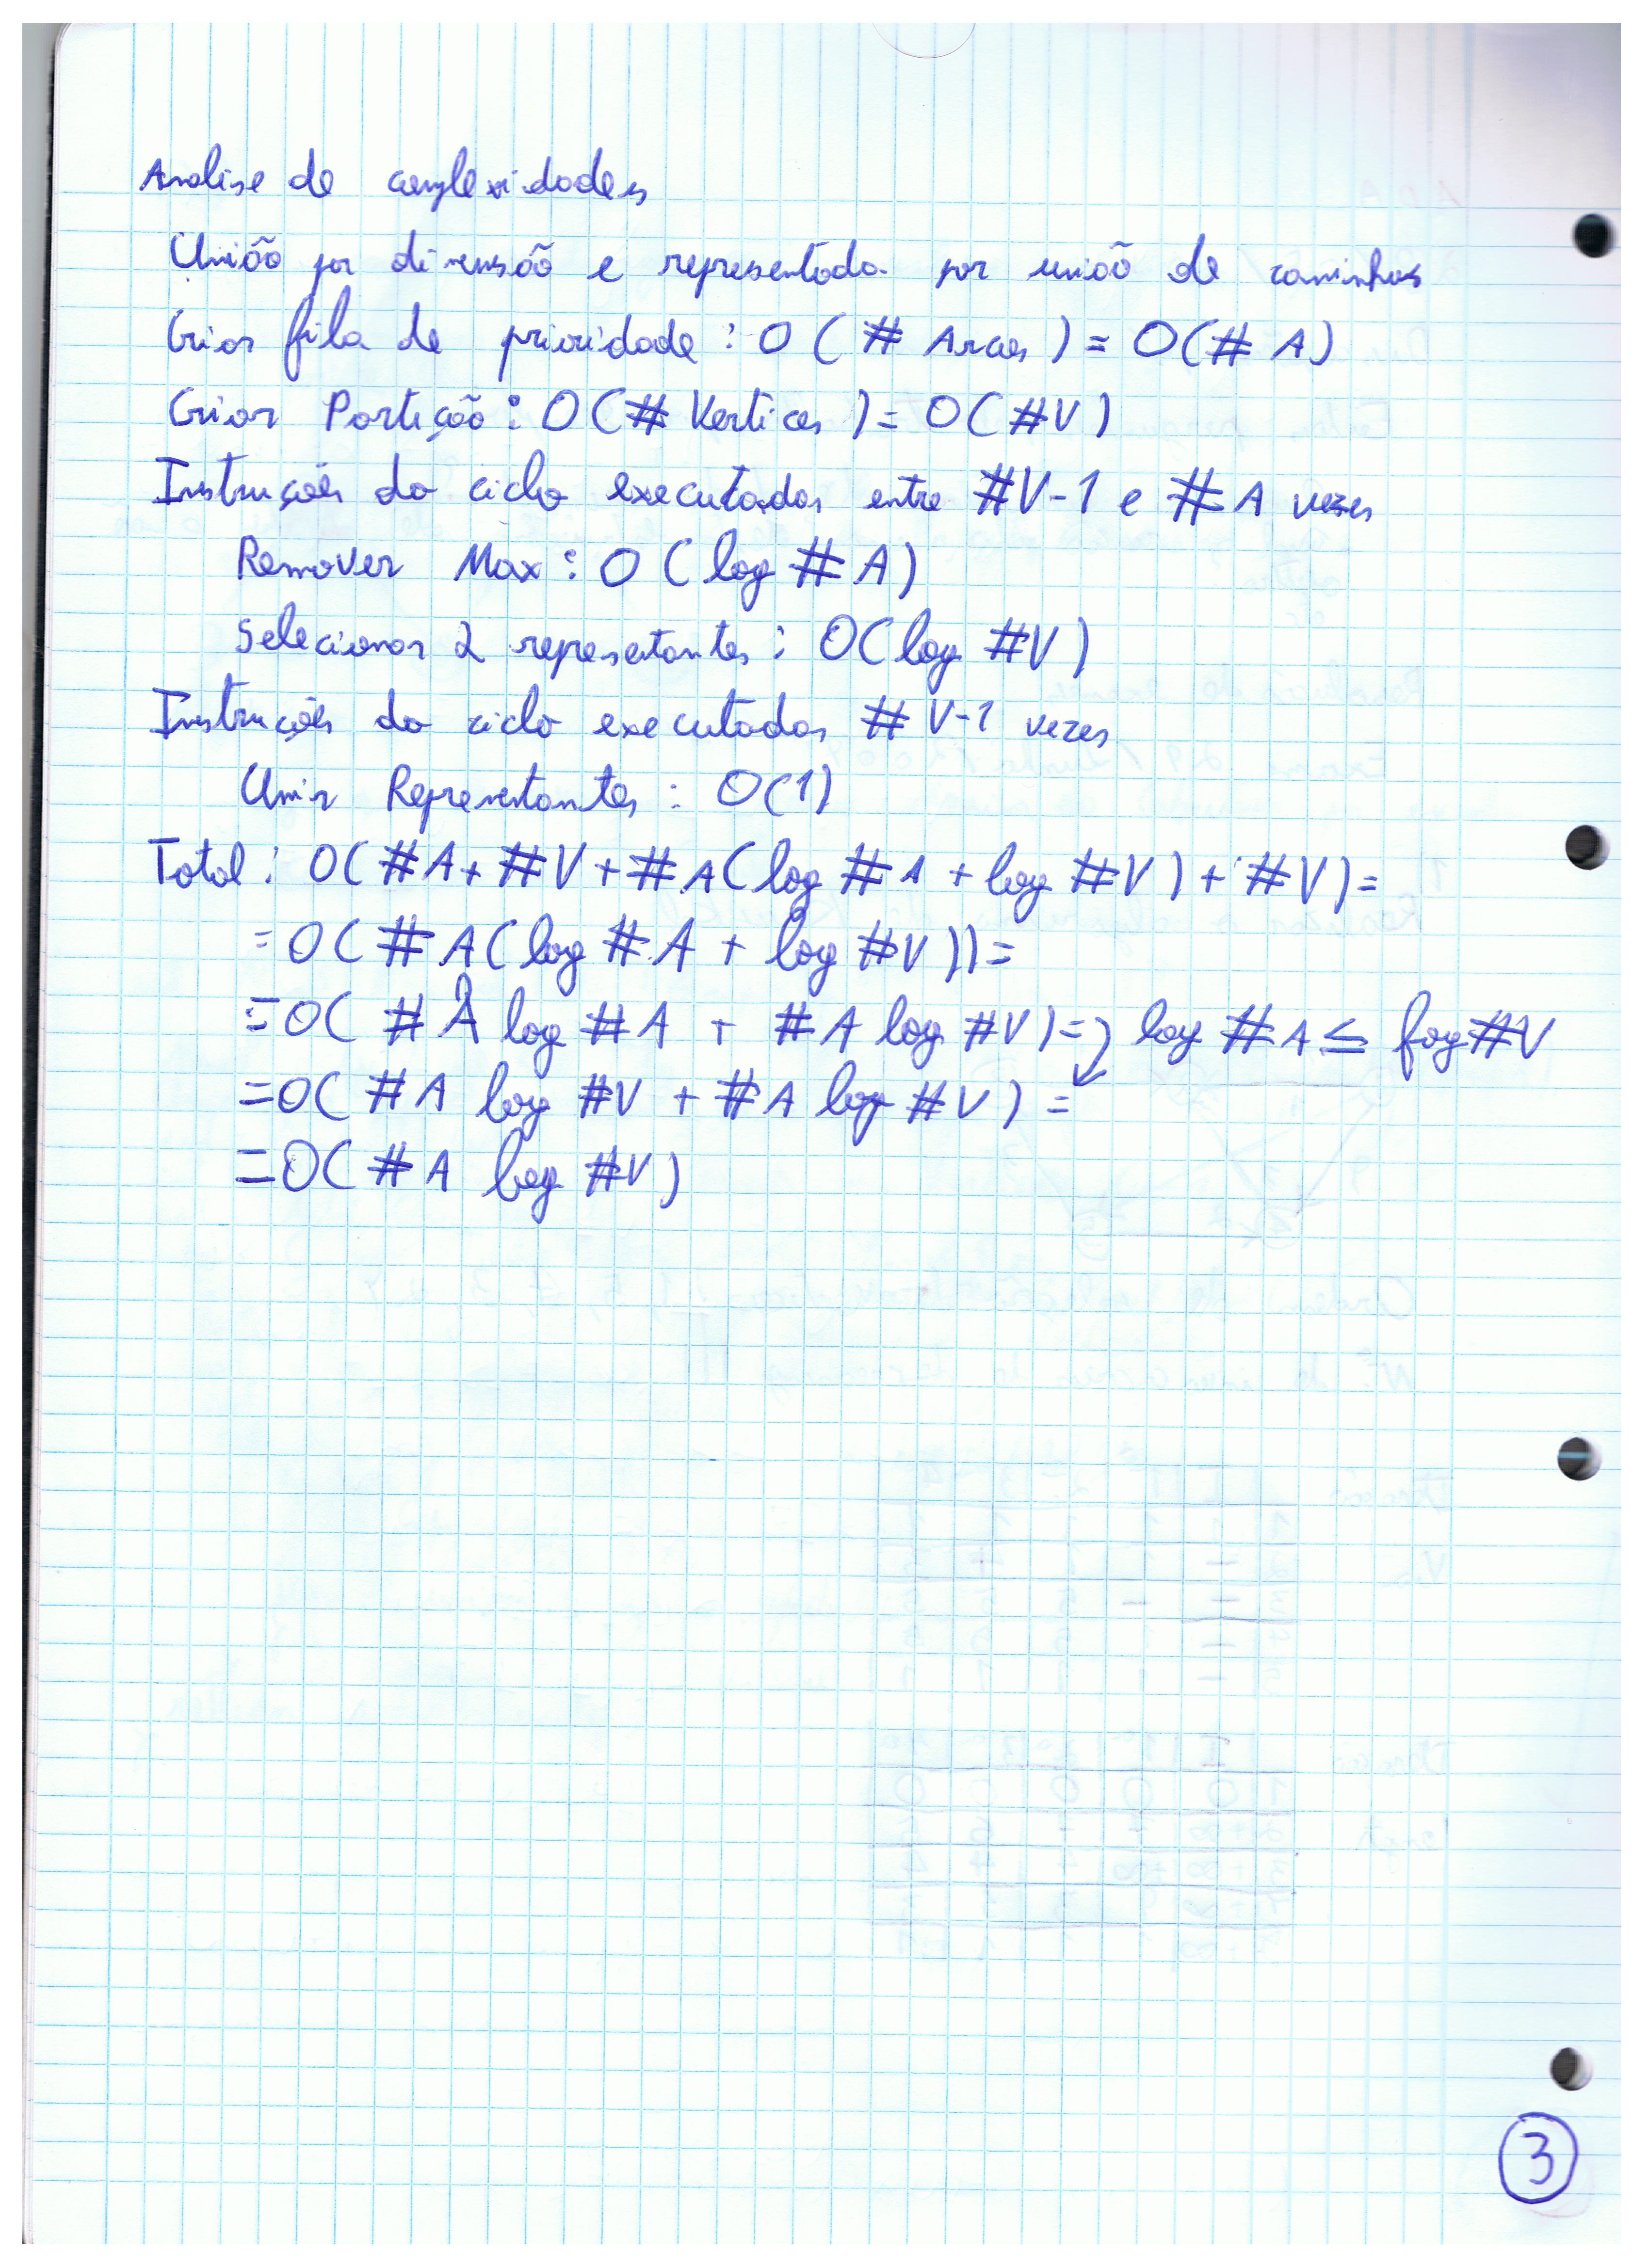 Analise de complexidades
União por dimensão e representada por união de caminhos
Criar fila de prioridade : O ( # Arcos ) = O(# A)
Criar Partição : O(# Vertices ) = O(#V)
Instruções do ciclo executadas entre #V-1 e #A vezes
Remover Max : O (log #A)
Selecionar 2 representantes : O(log #V)
Instruções do ciclo executadas #V-1 vezes
Unir Representantes : O(1)
Total : O(#A+ #V + #A(log #A + log #V) + #V) =
= O( #A(log #A + log #V )) =
= O( #A log #A + #A log #V) = log #A ≤ log #V
= O( #A log #V + #A log #V ) =
= O( #A log #V )
3